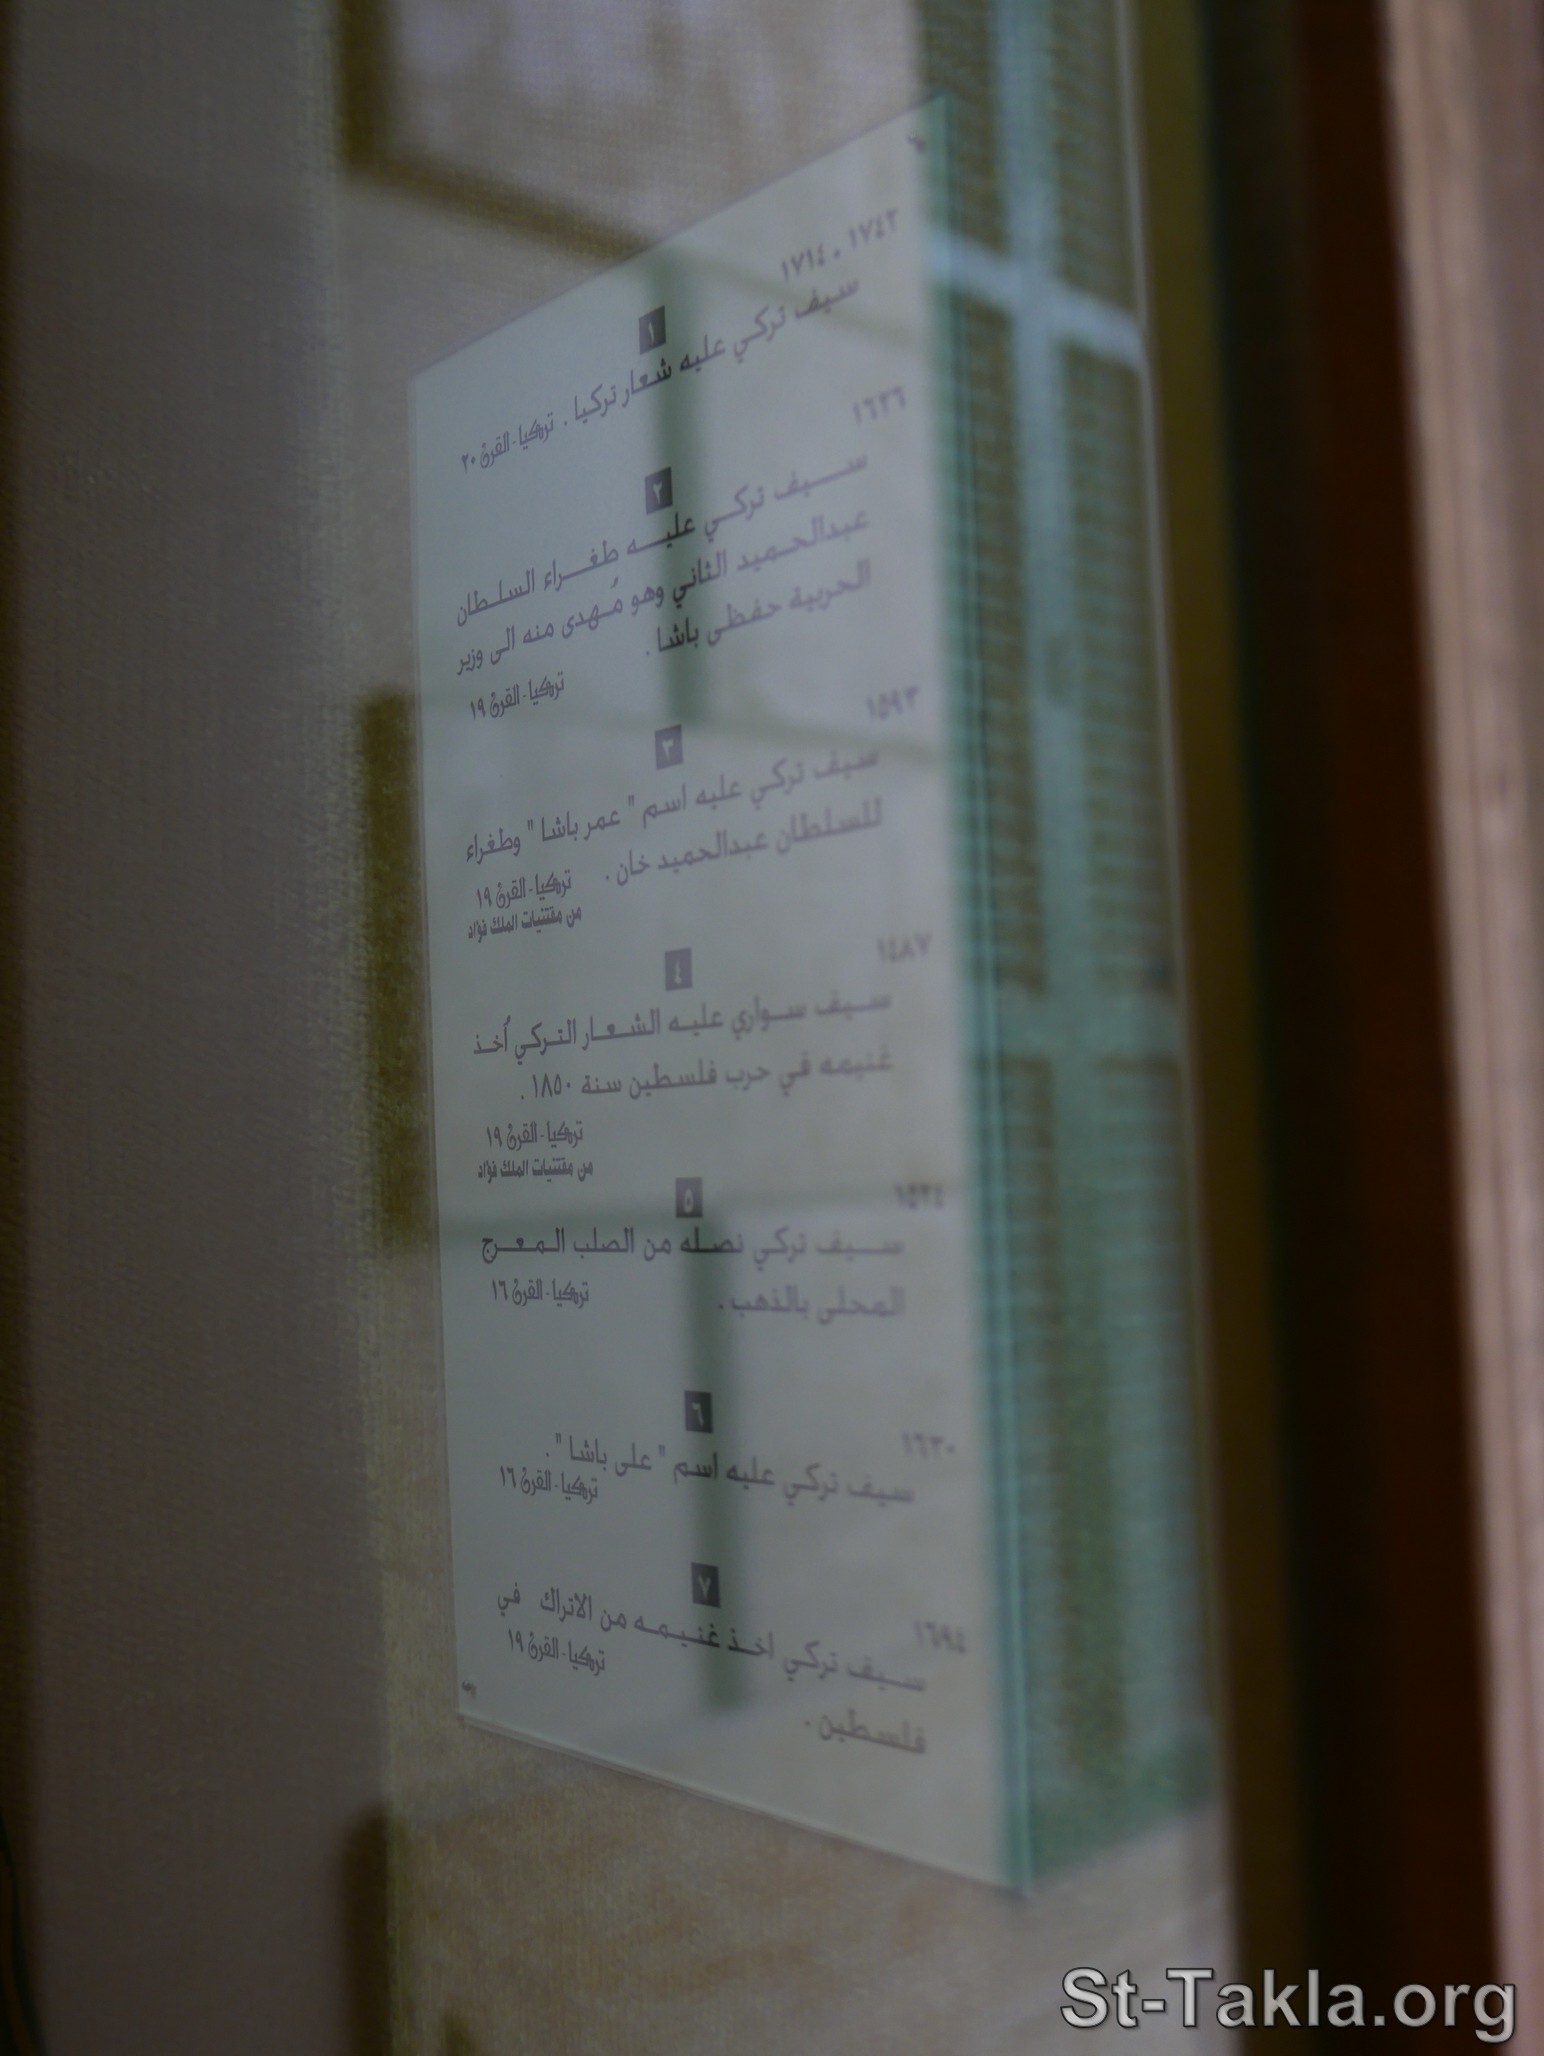 ١
١٧٤٢ - ١٧١٤
سيف تركي عليه شعار تركيا .
تركيا - القرن ٢٠
٢
١٦٢٦
سيف تركي عليه طغراء السلطان
عبدالحميد الثاني وهو مُهدى منه الى وزير
الحربية حفظى باشا .
تركيا - القرن ١٩
٣
١٥٩٣
سيف تركي عليه اسم " عمر باشا " وطغراء
للسلطان عبدالحميد خان .
تركيا - القرن ١٩
من مقتنيات الملك فؤاد
٤
١٤٨٧
سيف سواري عليه الشعار التركي أُخذ
غنيمه في حرب فلسطين سنة ١٨٥٠ .
تركيا - القرن ١٩
من مقتنيات الملك فؤاد
٥
١٥٢٤
سيف تركي نصله من الصلب المعرج
المحلى بالذهب .
تركيا - القرن ١٦
٦
١٦٣٠
سيف تركي عليه اسم " على باشا " .
تركيا - القرن ١٦
٧
١٦٩٤
سيف تركي اخذ غنيمه من الاتراك في
فلسطين .
تركيا - القرن ١٩
St-Takla.org